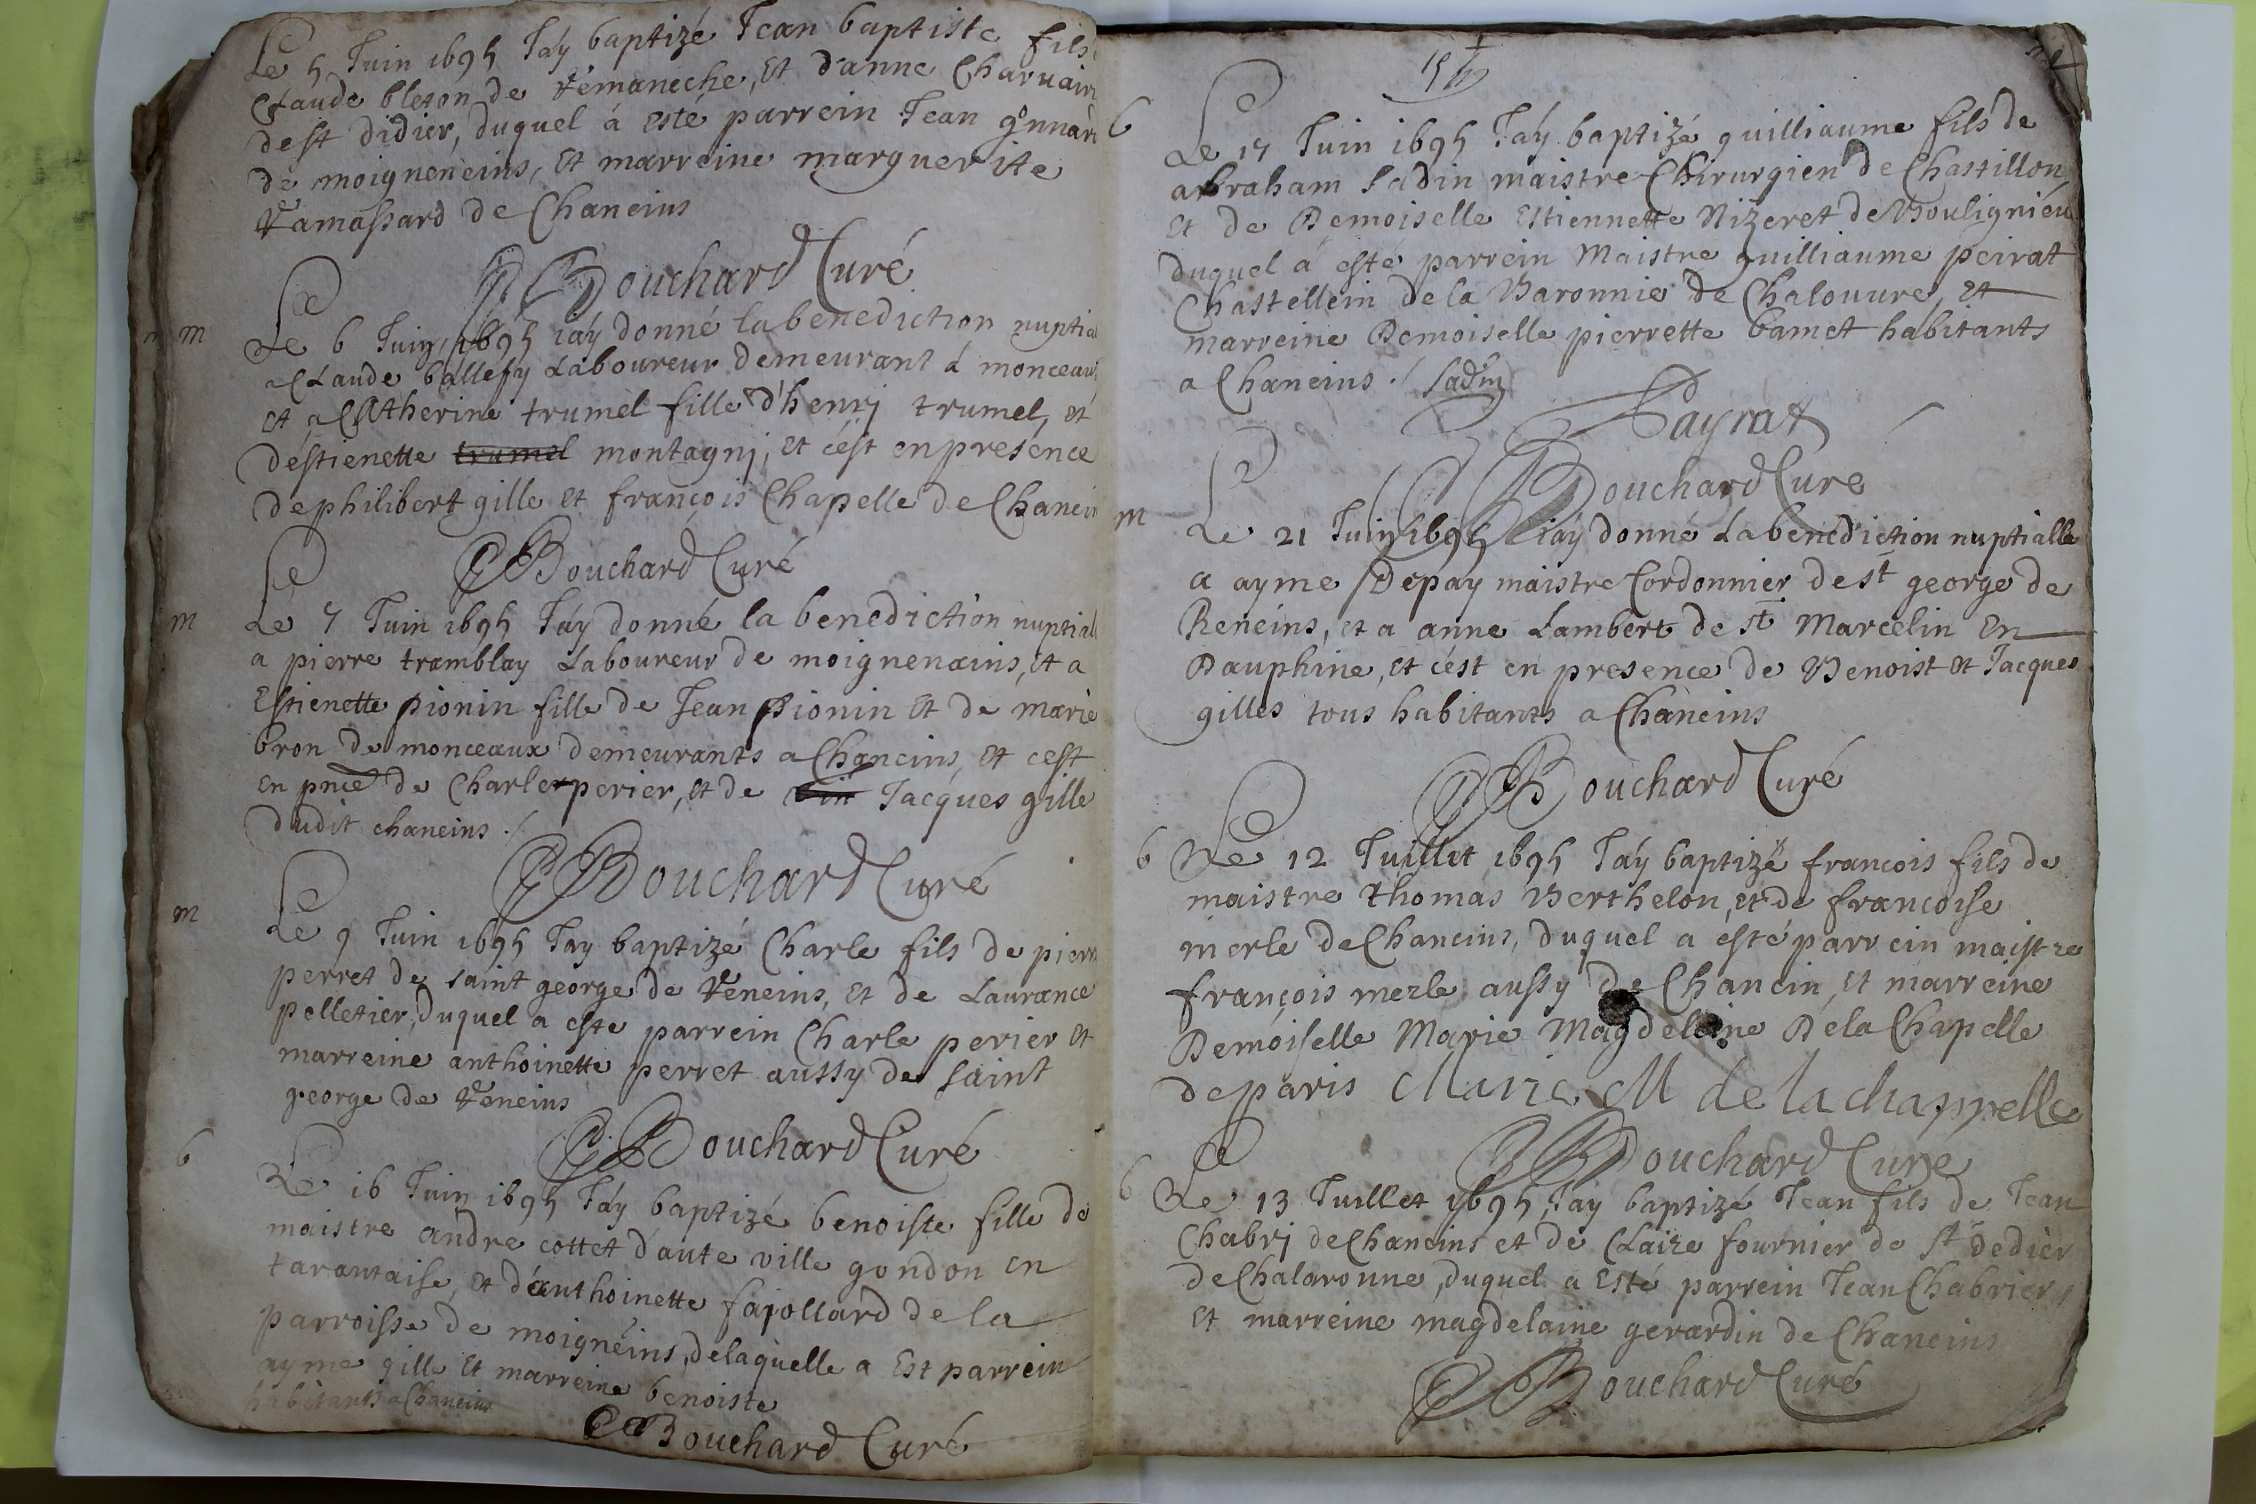 Le 5 Juin 1695 J'ay baptizé Jean baptiste fils
Claude bleton de Remaneche, et d'anne Charvain
de st didier, duquel á esté parrein Jean
de moigneneins, et marreine marguerite
Ramassard de Chaneins
Bouchard Curé
m
Le 6 Juin 1695 iáy donné la benediction nuptial
a Claude ballefy Laboureur demeurant á monceau
et a Catherine trumel fille d'henrj trumel, et
d'éstienette trumel montagnj, et cést en presénce
de philibert gille et françois Chapelle de Chanein
Bouchard Curé
m
Le 7 Juin 1695 J'áy donné la benediction nuptiall
a pierre tramblay Laboureur de moignenains, et a
Estienette pionin fille de Jean pionin et de marie
bron de monceaux demeurants a Chaneins, et cest
en pnce de Charle perier, et de Jacques gille
dudit chaneins ./
Bouchard Curé
m
Le 9 Juin 1695 J'ay baptizé Charle fils de pierr
perret de saint george de Reneins, et de Laurance
pelletier, duquel a este parrein Charle perier et
marreine anthoinette perret aussy de saint
george de Reneins
Bouchard Curé
b
Le 16 Juin 1695 J'áy baptizé benoiste fille de
maistre andre cottet d'aute ville gondon en
tarantaise, et d'anthoinette fajollard de la
parroisse de moignéins, delaquelle a Est parrein
ayme gille et marreine benoiste
habitants a Chaneins
Bouchard Curé
b
Le 17 Juin 1695 J'áy baptizé guilliaume fils de
abraham Ladin maistre Chirurgien de Chastillon
et de Demoiselle Estiennette Nizeret de Boulignieu
duquel a esté parrein Maistre guilliaume peirat
Chastellein de la Baronnie de Chalouvre, et
marreine Demoiselle pierrette bamet habitants
a Chaneins ./ Ladin
Payrat
Bouchard Cure
m
Le 21 Juin 1695 iáy donné La benediction nuptialle
a ayme Depay maistre Cordonnier de st george de
Reneins, et a anne Lambert de st Marcelin En
Dauphine, et cést en presence de Benoist et Jacques
gilles tous habitants a Chaneins
Bouchard Curé
b
Le 12 Juillit 1695 J'áy baptizé francois fils de
maistre thomas Berthelon, et de francoise
merle de Chaneins, duquel a esté parrein maistre
françois merle aussy de Chanein, et marreine
Demoiselle Marie Magdeleine De la Chapelle
de paris Marie M de la chappelle
Bouchard Cure
b
Le 13 Juillet 1695 J'ay baptizé Jean fils de Jean
Chabrj de Chaneins et de Claire fournier de St dedier
de Chalaronne, duquel a Esté parrein Jean Chabrier,
et marreine magdelaine gerardin de Chaneins
Bouchard Curé